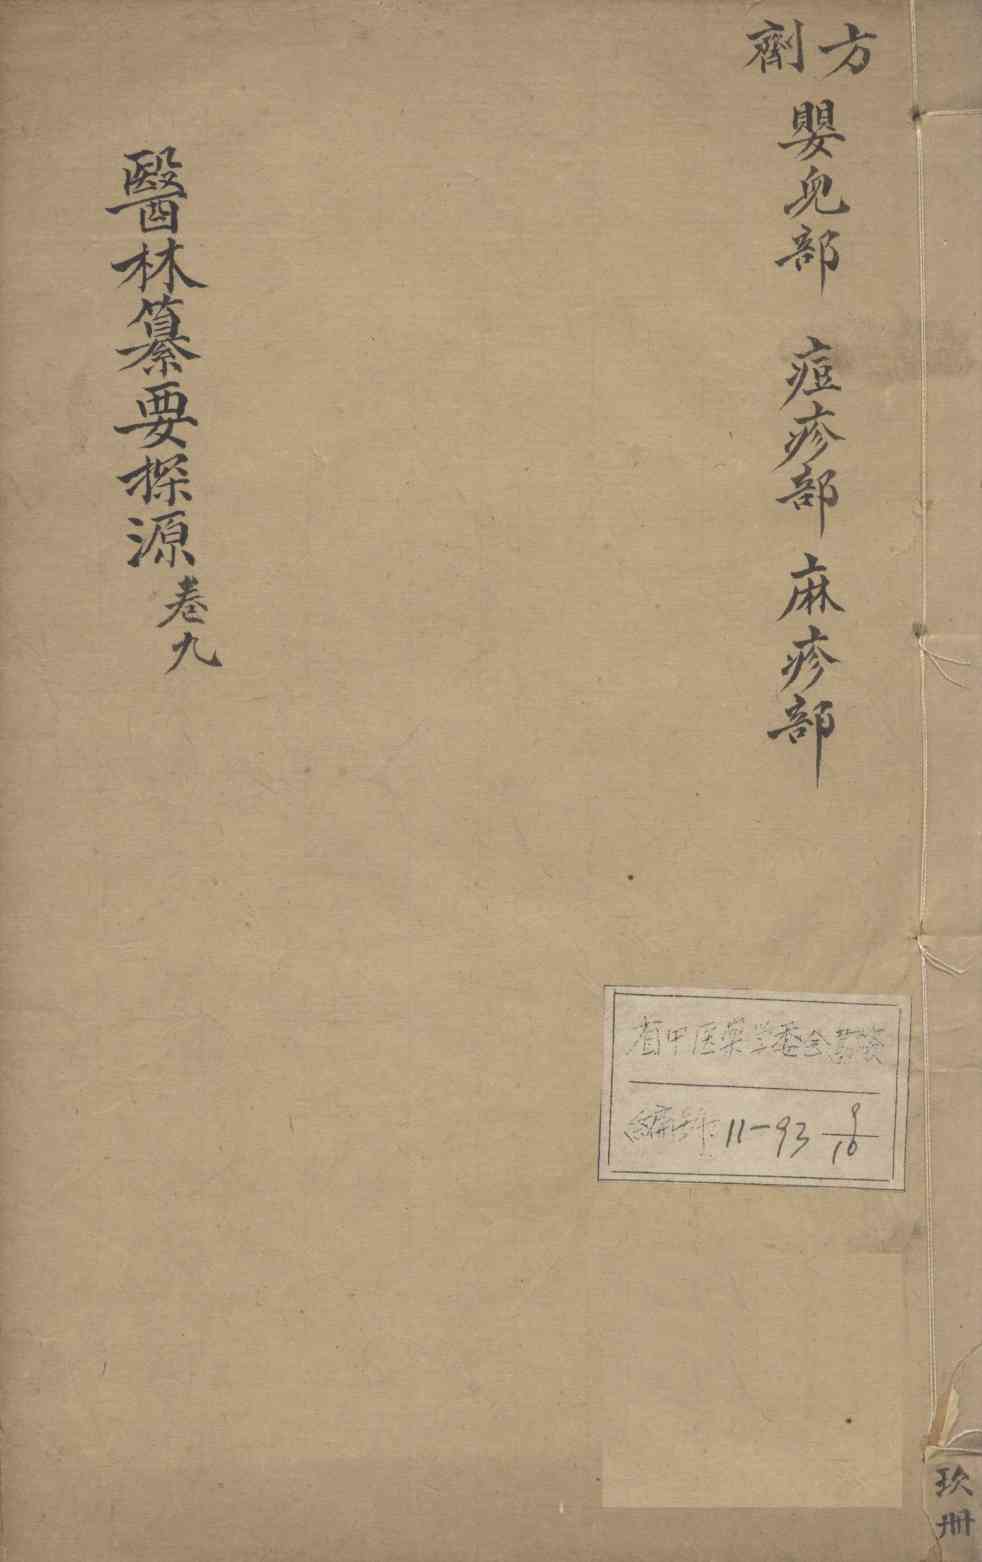 方劑
嬰兒部 痘疹部 麻疹部
醫林纂要探源 卷九
省中医药学委会
编号 11-93 9/10
玖册